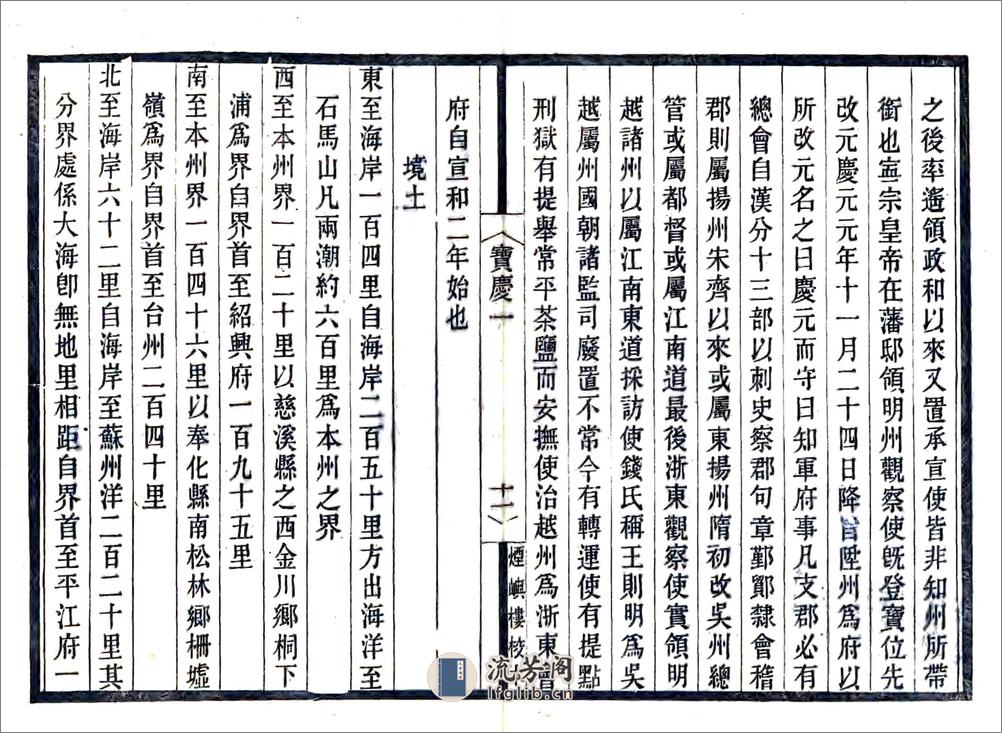 之後率遙領政和以來又置承宣使皆非知州所帶
銜也寧宗皇帝在藩邸領明州觀察使旣登寶位先
改元慶元元年十一月二十四日降旨陞州爲府以
所改元名之曰慶元而守曰知軍府事凡支郡必有
總會自漢分十三部以刺史察郡句章鄞鄮隸會稽
郡則屬揚州宋齊以來或屬東揚州隋初改吳州總
管或屬都督或屬江南道最後浙東觀察使實領明
越諸州以屬江南東道採訪使錢氏稱王則明爲吳
越屬州國朝諸監司廢置不常今有轉運使有提點
刑獄有提舉常平茶鹽而安撫使治越州爲浙東會
寶慶一
十一
煙嶼樓校
府自宣和二年始也
境土
東至海岸一百四里自海岸二百五十里方出海洋至
石馬山凡兩潮約六百里爲本州之界
西至本州界一百二十里以慈溪縣之西金川鄉桐下
浦爲界自界首至紹興府一百九十五里
南至本州界一百四十六里以奉化縣南松林鄉柵墟
嶺爲界自界首至台州二百四十里
北至海岸六十二里自海岸至蘇州洋二百二十里其
分界處係大海卽無地里相距自界首至平江府一
流芳阁
lfglib.cn